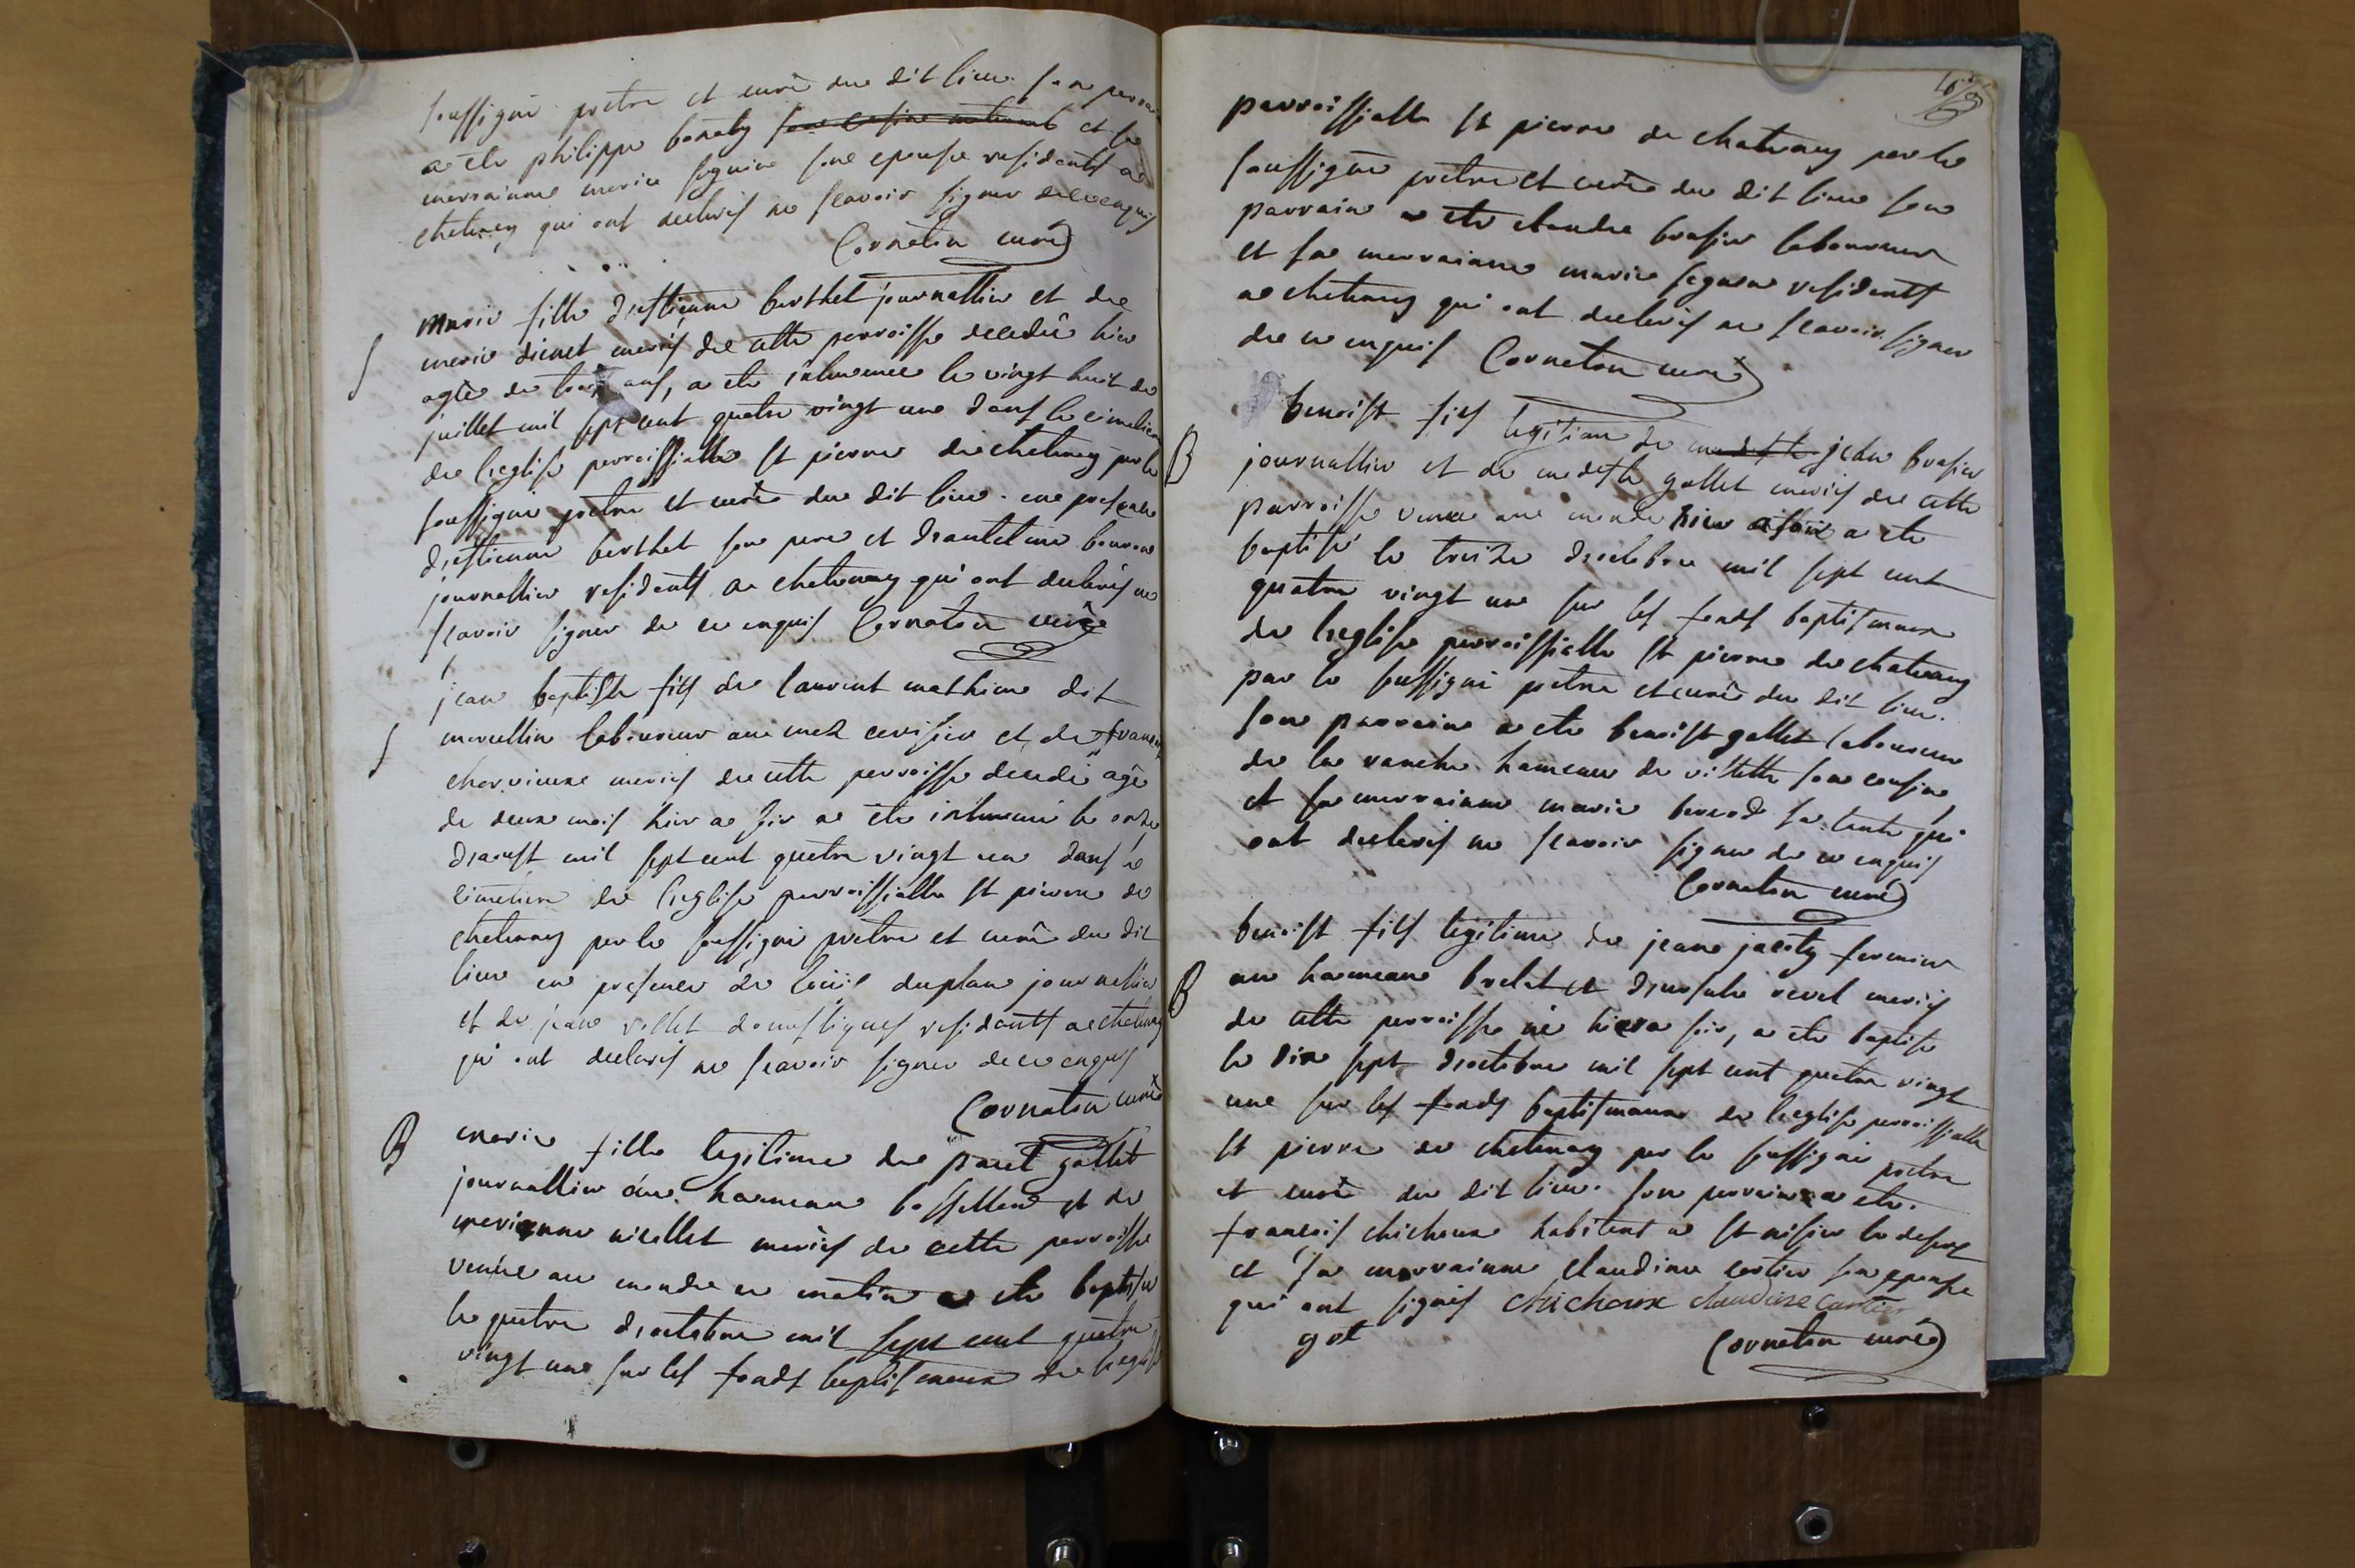 soussigné pretre et curé du dit lieu son parrain
a ete philippe bonety son cousin et sa
marrainne marie seguin son epouse residents a
chatenay qui ont declarés ne scavoir signer de ce enquis
Cornaton curé
marie fille d'estienne berthet journallier et de
marie mariés de cette parroisse decedée hier
agée de trois ans, a ete inhumée le vingt huit de
juillet mil sept cent quatre vingt un dans le cimetiere
de l'eglise parroissialle st pierre de chatenay par le
soussigné pretre et curé du dit lieu en presence
d'estienne berthet son pere et d'anthelme
journallier residents a chatenay qui ont declarés ne
scavoir signer de ce enquis Cornaton curé
jean baptiste fils de laurent mathieu dit
marcellin laboureur au mas cerisier et de
mariés de cette parroisse decedé agé
de deux mois hier a soir a ete inhumé le onze
d'aoust mil sept cent quatre vingt un dans le
cimetiere de l'eglise parroissialle st pierre de
chatenay par le soussigné pretre et curé du dit
lieu en presence de duplan journallier
et de jean domestiques residents a chatenay
qui ont declarés ne scavoir signer de ce enquis
Cornaton curé
B
marie fille legitime de gallet
journallier au hameau et de
marianne mariés de cette parroisse
venue au monde ce matin a ete baptisée
le quatre d'octobre mil sept cent quatre
vingt un sur les fonds baptismaux de l'eglise
parroissialle st pierre de chatenay par le
soussigné pretre et curé du dit lieu son
parrain a ete claudre brasier laboureur
et sa marrainne marie residents
a chatenay qui ont declarés ne scavoir signer
de ce enquis Cornaton curé
B
benoist fils legitime de modeste jean brasier
journallier et de modeste gallet mariés de cette
parroisse venu au monde hier a soir a ete
baptisé le treize d'octobre mil sept cent
quatre vingt un sur les fonds baptismaux
de l'eglise parroissialle st pierre de chatenay
par le soussigné pretre et curé du dit lieu.
son parrain a ete benoist gallet laboureur
de la ranche hameau de villette son cousin
et sa marrainne marie sa tante qui
ont declarés ne scavoir signer de ce enquis
Cornaton curé
B
benoist fils legitime de jean fermier
au hameau brelet et d'ursule revel mariés
de cette parroisse né hier a soir, a ete baptisé
le dix sept d'octobre mil sept cent quatre vingt
un sur les fonds baptismaux de l'eglise parroissialle
st pierre de chatenay par le soussigné pretre
et curé du dit lieu. son parrain a ete
francois chichoux habitant a st nisier le desert
et sa marrainne claudine cartier son epouse
qui ont signés chichoux claudine cartier
Cornaton curé